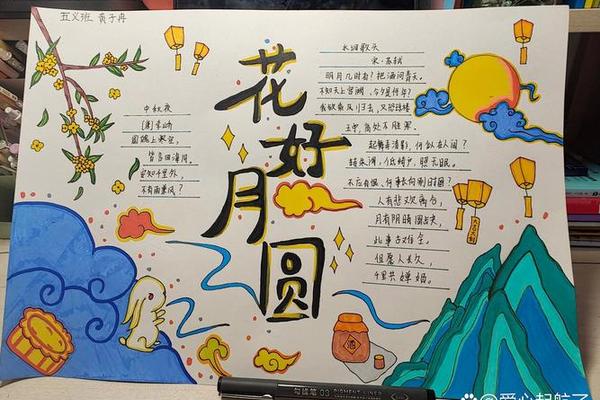 五义班 黄子冉
花好月圆
中秋夜
[唐]李峤
圆魄上寒空,
皆言四海同。
安知千里外,
不有雨兼风?
水调歌头
宋·苏轼
明月几时有?把酒问青天。
不知天上宫阙,今夕是何年?
我欲乘风归去,又恐琼楼
玉宇,高处不胜寒。
起舞弄清影,何似在人间?
转朱阁,低绮户,照无眠。
不应有恨,何事长向别时圆?
人有悲欢离合,
月有阴晴圆缺,
此事古难全。
但愿人长久,
千里共婵娟。
酒
勾线笔 03 PIGMENT LINER
@爱心起航了